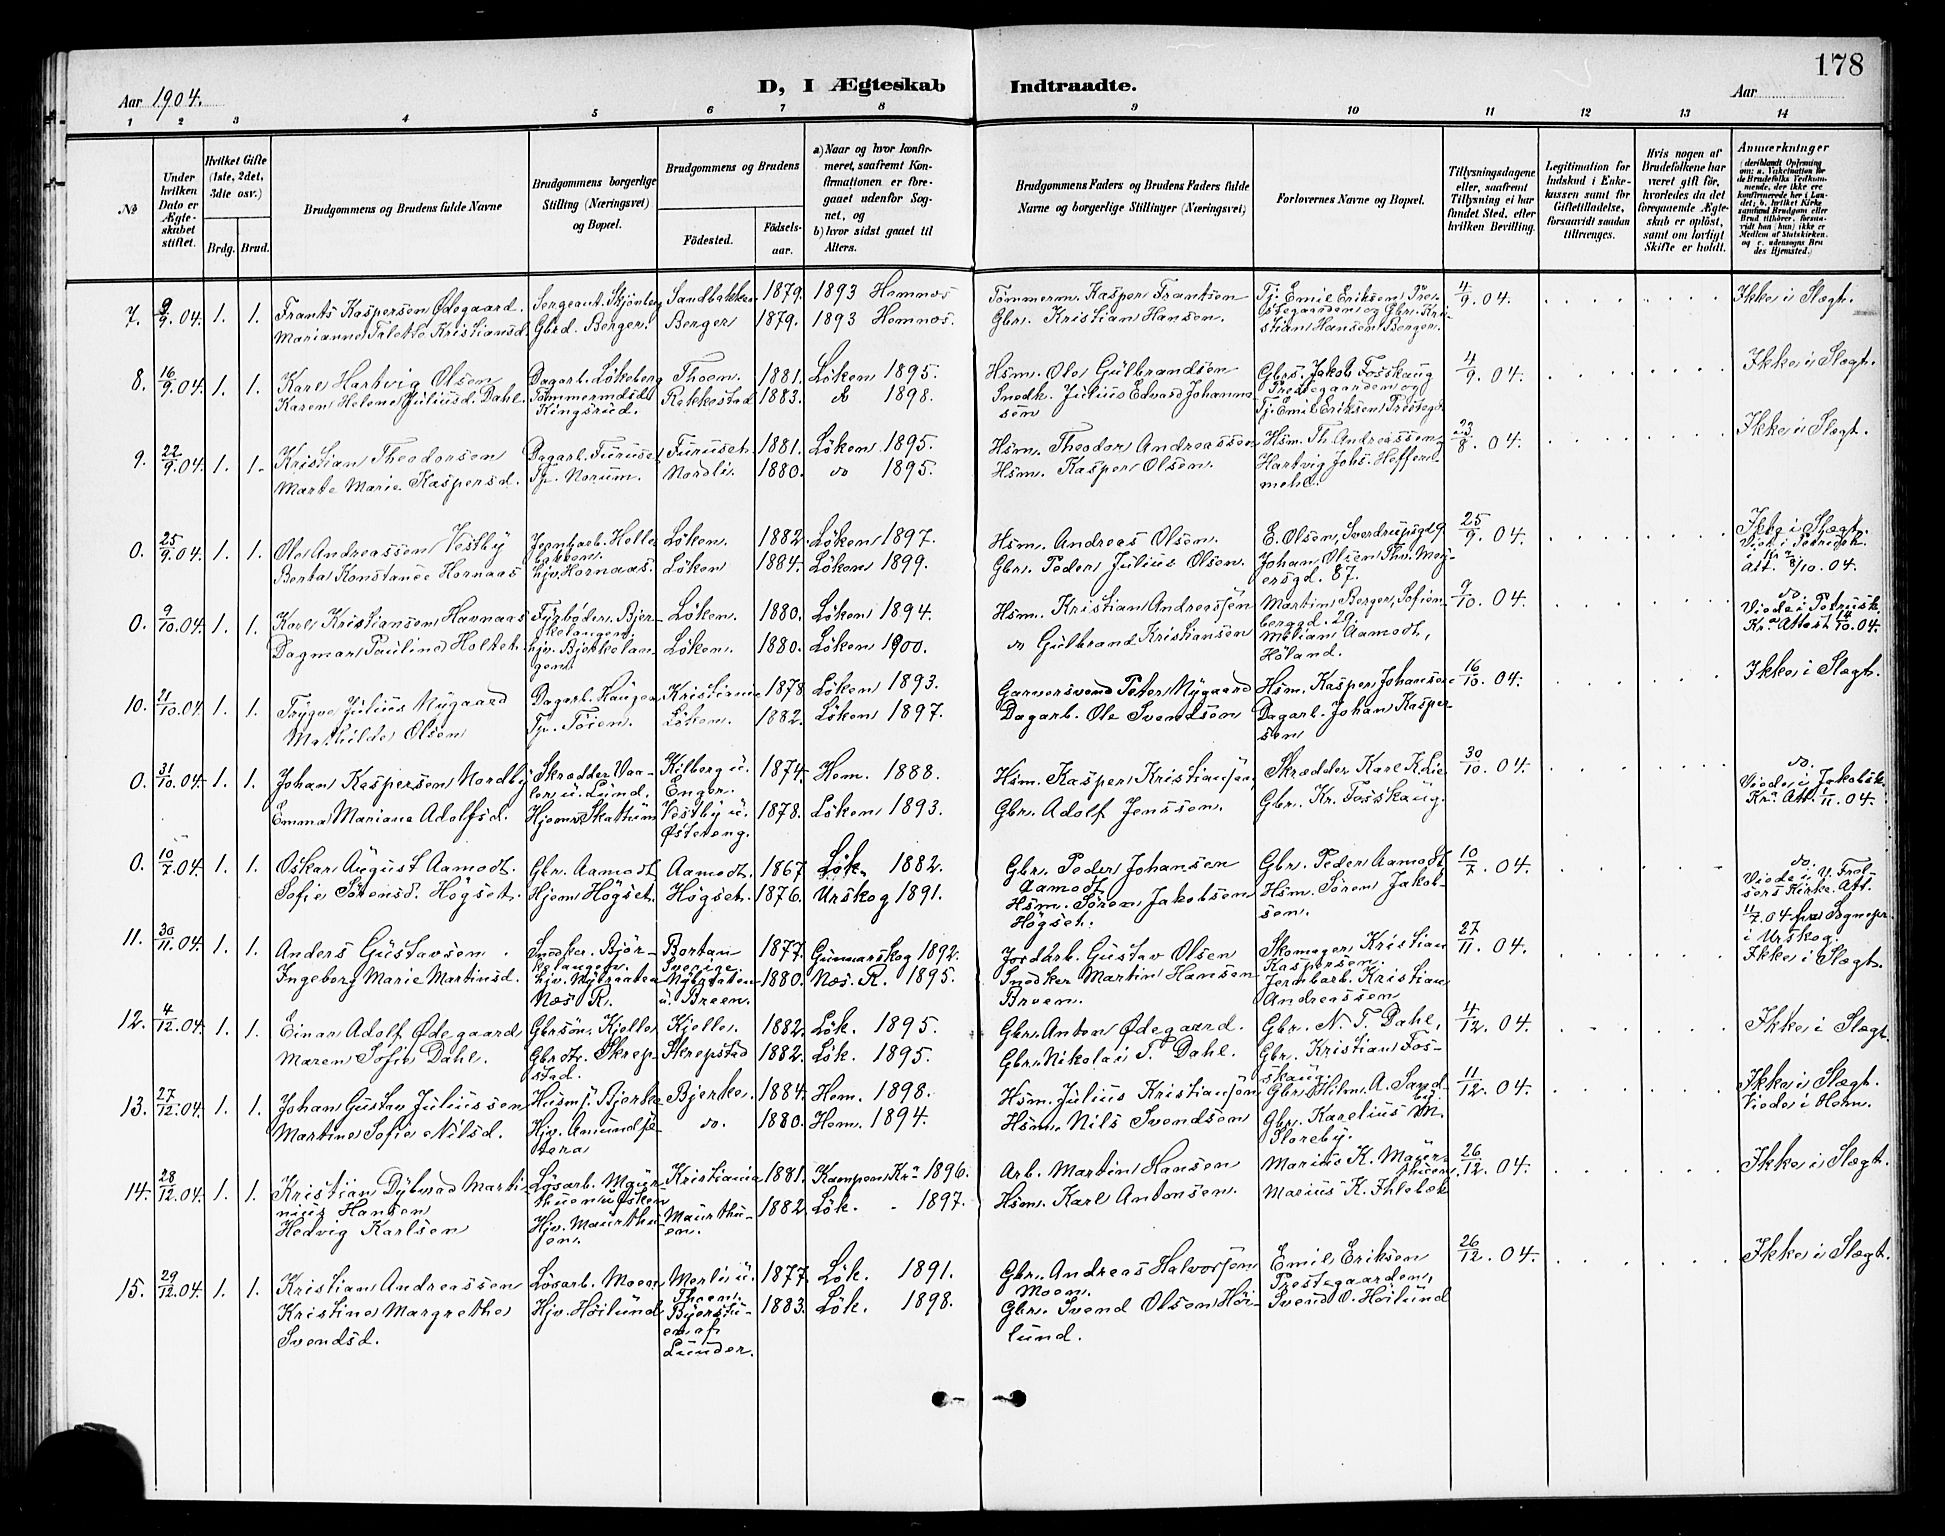 178
Aar 1904.
D, I Ægteskab Indtraadte.
Aar
1 2 3 4 5 6 7 8 9 10 11 12 13 14
№
Under hvilken Dato er Ægteskabet stiftet.
Hvilket Gifte (1ste, 2det, 3die osv.)
Brdg. Brud.
Brudgommens og Brudens fulde Navne
Brudgommens borgerlige Stilling (Næringsvei) og Bopæl.
Brudgommens og Brudens
Fødested.
Fødsels-aar.
a) Naar og hvor konfirmeret, saafremt Konfirmationen er foregaaet udenfor Sognet, og
b) hvor sidst gaaet til Alters.
Brudgommens Faders og Brudens Faders fulde Navne og borgerlige Stillinger (Næringsvei)
Forlovernes Navne og Bopæl.
Tillysningsdagene eller, saafremt Tillysning ei har fundet Sted, efter hvilken Bevilling.
Legitimation for Indskud i Enkekassen samt for Giftetilladelse, forsaavidt saadan tiltrænges.
Hvis nogen af Brudefolkene har været gift før, hvorledes da det foregaaende Ægteskab er opløst, samt om lovligt Skifte er holdt.
Anmærkninger
7. 9/9.04. 1. 1. Frants Kaspersen Ødegaard. Sergeant. Sandbakken 1879. 1893 Hemnæs Tømmerm. Kasper Frantsen Tj. Emil Eriksen, 4/9.04. Ikke i Slægt.
Marianne Talette Kristiansd. Gbrd. Berger. Berger 1879. 1893 Hemnæs. Gbr. Kristian Hansen. Kristian Hansen Berger.
8. 16/9.04. 1. 1. Karl Hartvig Olsen Dagarb. Løkeberg Thoen. 1881. Løken 1895. Hsm. Ole Gulbrandsen Gbrs. Jakob Fosskaug 4/9.04. Ikke i Slægt.
Karen Helene Juliusd. Dahl. Kingsrud. Rakkestad 1883. do 1898. Snedk. Julius Edvard Johannsen Prestegaarden og
Tj. Emil Eriksen Prestegd.
9. 22/9.04. 1. 1. Kristian Theodorsen Dagarb. Furuset Furuset. 1881. Løken 1895. Hsm. Theodor Andreassen Hsm. Th. Andreassen 23/8.04. Ikke i Slægt.
Marte Marie Kaspersd. Tp. Norum. Nordli. 1880. do 1895. Hsm. Kasper Olsen. Hartvig Johs.
0. 25/9.04. 1. 1. Ole Andreassen Vestby Jernbarb. Løken. 1882. Løken 1897. Hsm. Andreas Olsen. E. Olsen, 25/9.04. Ikke i Slægt.
Berta Konstance Hornaas Hjv. Hornaas. Løken 1884. Løken 1899. Gbr. Peder Julius Olsen. Johan Olsen Thv. Meyersgd. 87. Att. 8/10.04.
0. 9/10.04. 1. 1. Karl Kristiansen Havnaas Fyrbøder Bjerkelangen, Løken. 1880. Løken 1894. Hsm. Kristian Andreassen Martin Berger, Sofienberggd. 29. 9/10.04. do.
Dagmar Pauline Holtet. Hjv. Bjerkelangen. Løken. 1880. Løken 1900. do Gulbrand Kristiansen Aamodt, Høland. Kra Attest 14/10.04.
10. 21/10.04. 1. 1. Trygve Julius Nygaard Dagarb. Haugen Kristiania 1878 Løken 1893. Garversvend Peter Nygaard Hsm. Kasper Johansen 16/10.04. Ikke i Slægt.
Mathilde Olsen Tp. Toien. Løken. 1882. Løken 1897. Dagarb. Ole Svendsen Dagarb. Johan Kaspersen
0. 31/10.04. 1. 1. Johan Kaspersen Nordby Skrædder Vaaler u. Lund. Kilborg u. Enger. 1874. Hem. 1888. Hsm. Kasper Kristiansen, Skrædder Karl K. Lie 30/10.04. do.
Emma Mariane Adolfsd. Hjemv. Skattum Vestby u. Østereng. 1878. Løken 1893. Gbr. Adolf Jenssen. Gbr. Kr. Fosskaug. Viede i Jakobsk. Kra. Att. 1/11.04.
0. 10/7.04. 1. 1. Oskar August Aamodt. Gbr. Aamodt Aamodt. 1867 Løk. 1882. Gbr. Peder Johansen Aamodt Gbr. Peder Aamodt 10/7.04. do.
Sofie Sørensd. Høgset. Hjem. Høgset. Høgset. 1876. Urskog 1891. Hsm. Søren Jakobsen Høgset. Hsm. Søren Jakobsen. 11/7.04 fra Sognepr. i Urskog.
11. 30/11.04. 1. 1. Anders Gustavsen. Snedker. Bjørkelangen. Bortan Sverige. 1877. Gunnarskog 1892. Jordarb. Gustav Olsen Skomager Kristian Kaspersen. 27/11.04. Ikke i Slægt.
Ingeborg Marie Martinsd. Næs R. u. Breen. 1880. Næs. R. 1895. Snedker Martin Hansen Breen. Jernbarb. Kristian Andreassen
12. 4/12.04. 1. 1. Einar Adolf Ødegaard Gbrsøn. Kjelle Kjelle. 1882. Løk. 1895. Gbr. Anton Ødegaard. Gbr. N. T. Dahl, 4/12.04. Ikke i Slægt.
Maren Sofie Dahl. Gbrdtr. Skrepstad. Skrepstad 1882. Løk. 1895. Gbr. Nikolai T. Dahl. Gbr. Kristian Fosskaug.
13. 27/12.04. 1. 1. Johan Gustav Juliussen Husms. Bjerke Bjerke. 1884. Hem. 1898. Hsm. Julius Kristiansen Gbr. Hilm. A. Sandby. 11/12.04. Ikke i Slægt.
Martine Sofie Nilsd. Hjv. do. 1880. Hem. 1894. Hsm. Nils Svendsen Gbr. Karelius M. Sloreby. Viede i Hem.
14. 28/12.04. 1. 1. Kristian Dybvad Martinius Hansen Løsarb. Kristiania 1881. Kampen Kra 1896. Arb. Martin Hansen Marius K. 26/12.04. Ikke i Slægt.
Hedvig Karlsen Hjv. Maurthuen. Maurthuen. 1882. Løk. - 1897. Hsm. Karl Antonsen. Marius K. Ihlebæk
15. 29/12.04. 1. 1. Kristian Andreassen Løsarb. Moen Merli u. Thoen. 1877. Løk. 1891. Gbr. Andreas Halvorsen Moen. Emil Eriksen Prestegaarden, 26/12.04. Ikke i Slægt.
Kristine Margrethe Svendsd. Hjv. Høilund af Lunder. 1883. Løk. 1898. Gbr. Svend Olsen Høilund. Svend O. Høilund